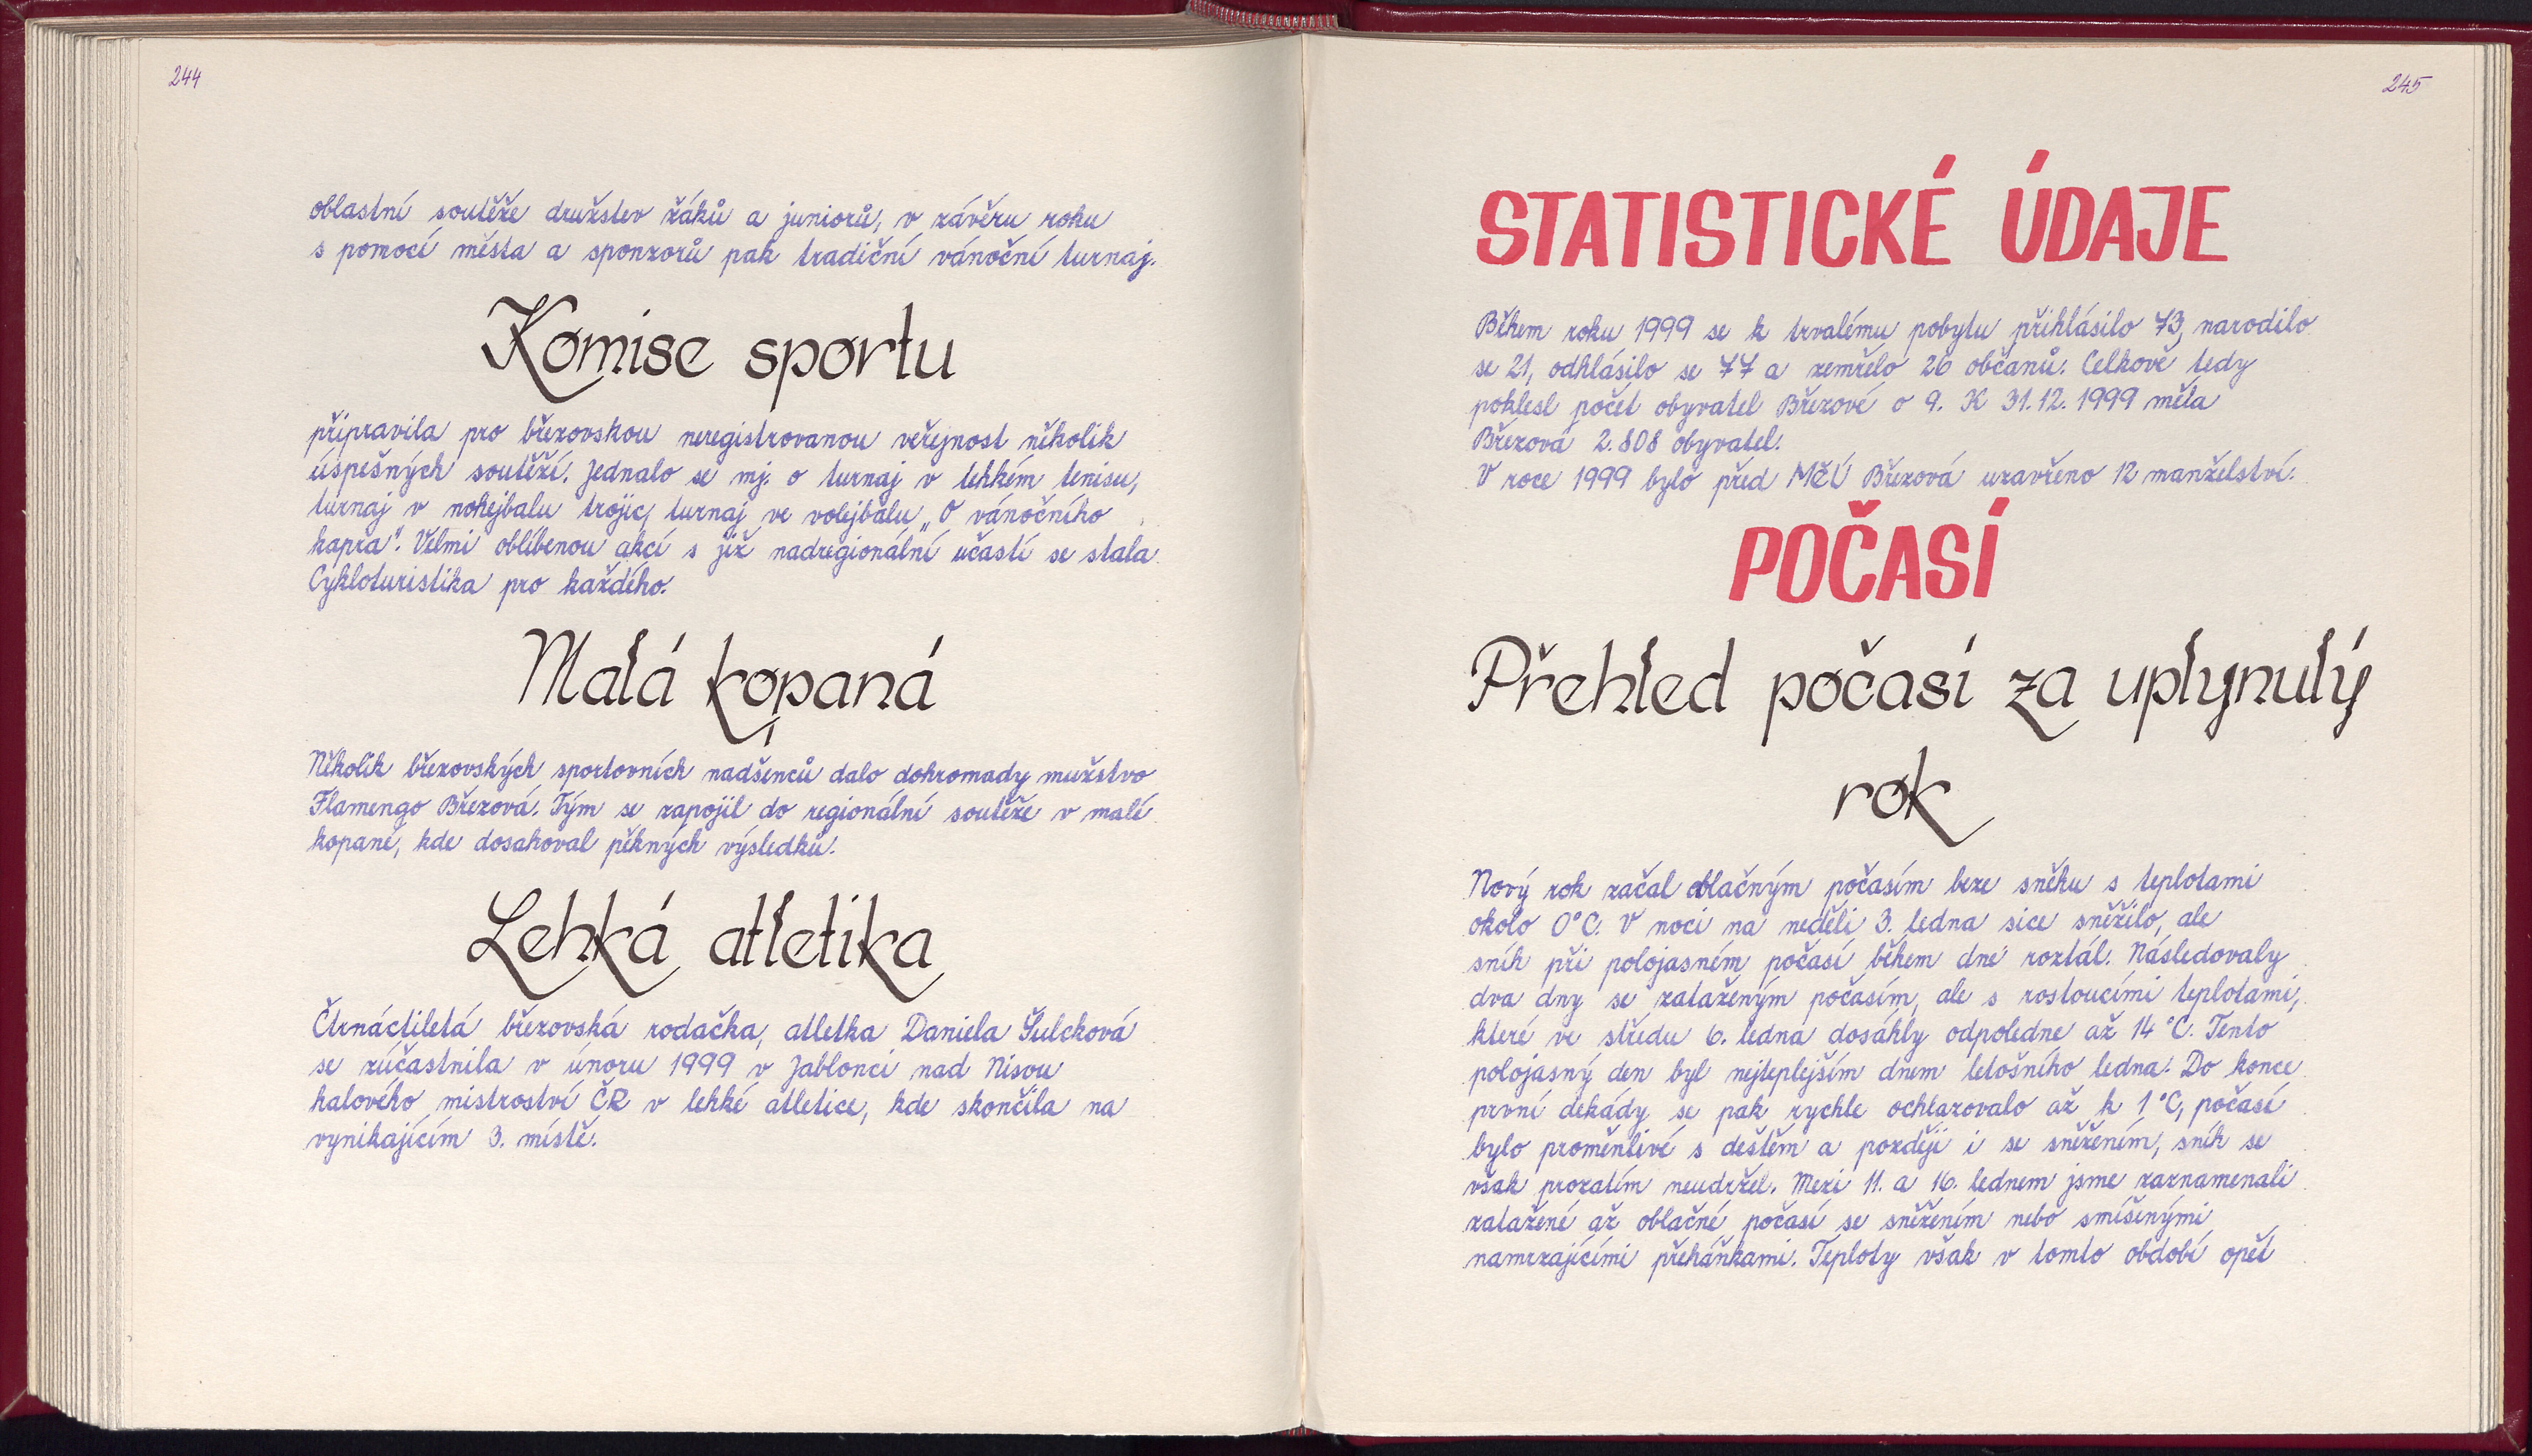 244
oblastní soutěže družstev žáků a juniorů, v závěru roku
s pomocí města a sponzorů pak tradiční vánoční turnaj.
Komise sportu
připravila pro březovskou neregistrovanou veřejnost několik
úspešných soutěží. Jednalo se mj. o turnaj v lehkém tenisu,
turnaj v nohejbalu trojic, turnaj ve volejbalu „O vánočního
kapra". Velmi oblíbenou akcí s již nadregionální účastí se stala
Cykloturistika pro každého.
Malá kopaná
Několik březovských sportovních nadšenců dalo dohromady mužstvo
Flamengo Březová. Tým se zapojil do regionální soutěže v malé
kopané, kde dosahoval pěkných výsledků.
Lehká atletika
Čtrnáctiletá březovská rodačka, atletka Daniela Šulcková
se zúčastnila v únoru 1999 v Jablonci nad Nisou
halového mistroství ČR v lehké atletice, kde skončila na
vynikajícím 3. místě.
245
STATISTICKÉ ÚDAJE
Během roku 1999 se k trvalému pobytu přihlásilo 73, narodilo
se 21, odhlásilo se 77 a zemřelo 26 občanů. Celkově tedy
poklesl počet obyvatel Březové o 9. K 31.12.1999 měla
Březová 2.808 obyvatel.
V roce 1999 bylo před MěÚ Březová uzavřeno 12 manželství.
POČASÍ
Přehled počasí za uplynulý
rok
Nový rok začal oblačným počasím beze sněhu s teplotami
okolo 0°C. V noci na neděli 3. ledna sice sněžilo, ale
sníh při polojasném počasí během dne roztál. Následovaly
dva dny se zataženým počasím, ale s rostoucími teplotami,
které ve středu 6. ledna dosáhly odpoledne až 14 °C. Tento
polojasný den byl nejteplejším dnem letošního ledna. Do konce
první dekády se pak rychle ochlazovalo až k 1 °C, počasí
bylo proměnlivé s deštěm a později i se sněžením, sníh se
však prozatím neudržel. Mezi 11. a 16. lednem jsme zaznamenali
zatažené až oblačné počasí se sněžením nebo smíšenými
namrzajícími přeháňkami. Teploty však v tomto období opět